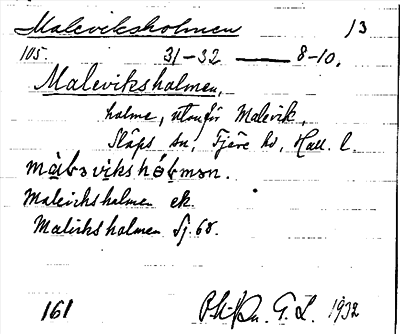 Maleviksholmen 13
105. 31-32 — 8-10.
Maleviksholmen,
holme, utanför Malevik,
Släps sn, Fjäre hd, Hall. l.
Maleviksholmen ek.
Malviksholmen Sj. 68.
161 G. L. 1932